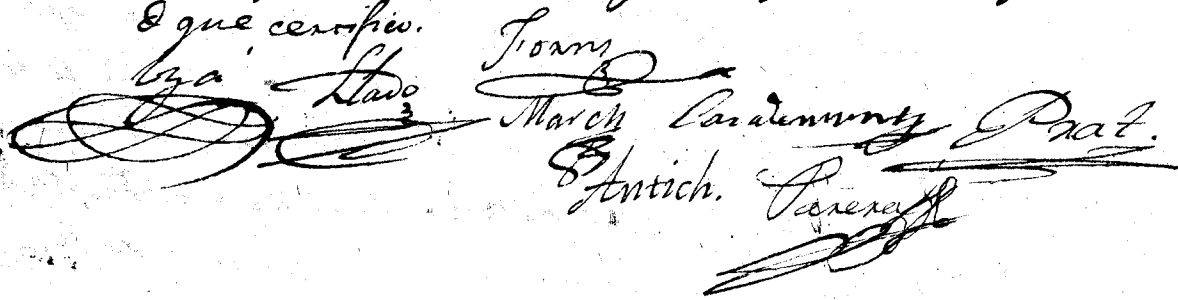 d que certifico.
Lladó Forns
March Casademunt Prat.
Antich. Parera